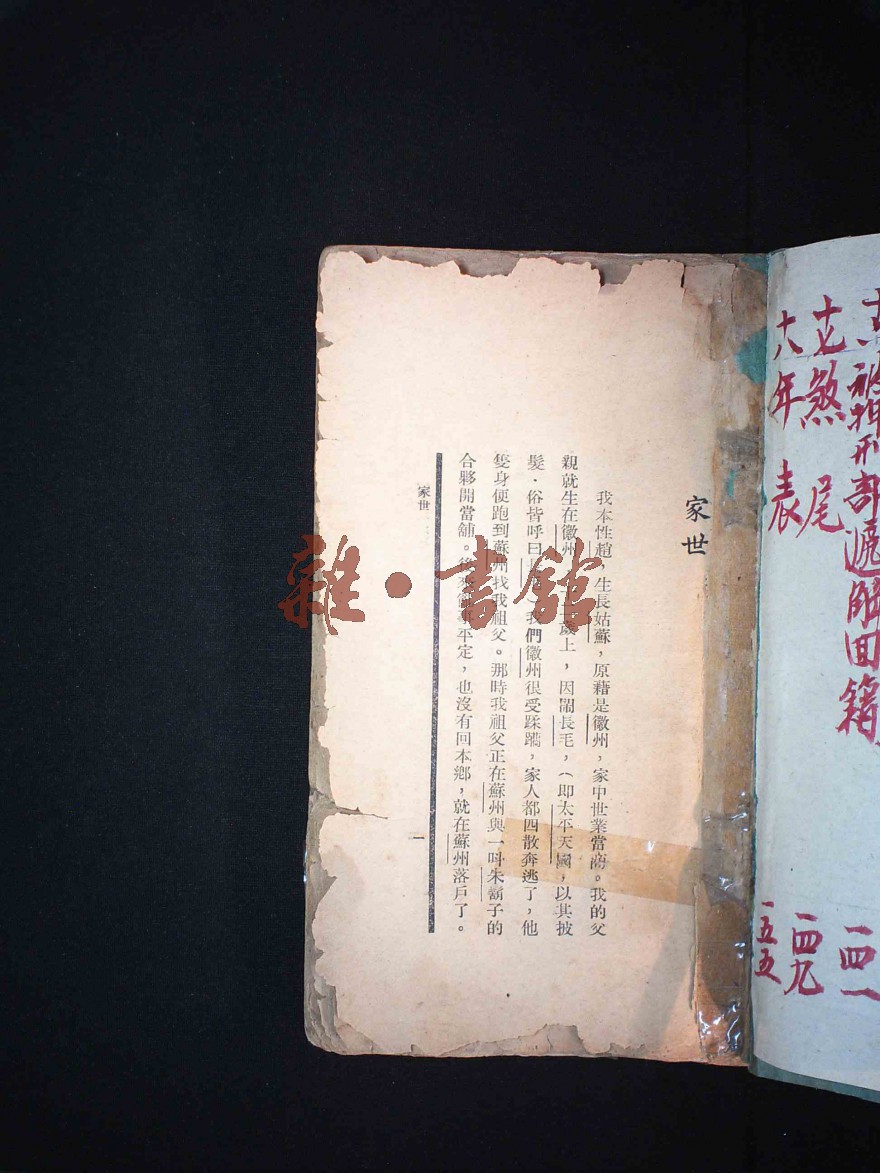 十六 被押刑部遞解回籍
十七 煞尾
十八 年表
一四一
一四九
一五五
家世
我本性趙，生長姑蘇，原藉是徽州，家中世業當商。我的父
親就生在徽州，歲上，因鬧長毛，（即太平天國，以其披
髮．俗皆呼曰長毛）我們徽州很受蹂躪，家人都四散奔逃了，他
隻身便跑到蘇州找我祖父。那時我祖父正在蘇州與一呌朱鬍子的
合夥開當舖。後來平定，也沒有回本鄉，就在蘇州落戶了。
家世
一
雜·書館